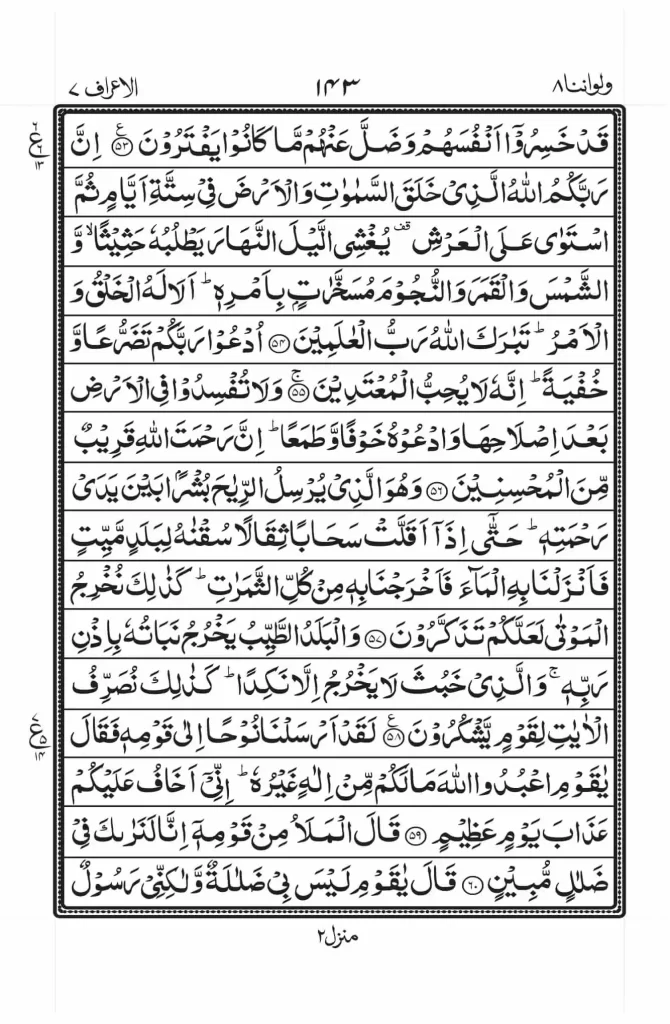 ولواننا ٨ ١٤٣ الاعراف ٧
قَدْ خَسِرُوْۤا اَنْفُسَهُمْ وَضَلَّ عَنْهُمْ مَّا كَانُوْا يَفْتَرُوْنَ ﴿٥٣﴾ ع اِنَّ
ع ٢ ٦ ١٣
رَبَّكُمُ اللّٰهُ الَّذِيْ خَلَقَ السَّمٰوٰتِ وَالْاَرْضَ فِيْ سِتَّةِ اَيَّامٍ ثُمَّ
اسْتَوٰى عَلَى الْعَرْشِ قف يُغْشِى الَّيْلَ النَّهَارَ يَطْلُبُهٗ حَثِيْثًا ۙ وَّ
الشَّمْسَ وَالْقَمَرَ وَالنُّجُوْمَ مُسَخَّرٰتٍۭ بِاَمْرِهٖ ؕ اَلَا لَهُ الْخَلْقُ وَ
الْاَمْرُ ؕ تَبٰرَكَ اللّٰهُ رَبُّ الْعٰلَمِيْنَ ﴿٥٤﴾ اُدْعُوْا رَبَّكُمْ تَضَرُّعًا وَّ
خُفْيَةً ؕ اِنَّهٗ لَا يُحِبُّ الْمُعْتَدِيْنَ ﴿٥٥﴾ ۚ وَلَا تُفْسِدُوْا فِى الْاَرْضِ
بَعْدَ اِصْلَاحِهَا وَادْعُوْهُ خَوْفًا وَّطَمَعًا ؕ اِنَّ رَحْمَتَ اللّٰهِ قَرِيْبٌ
مِّنَ الْمُحْسِنِيْنَ ﴿٥٦﴾ وَهُوَ الَّذِيْ يُرْسِلُ الرِّيٰحَ بُشْرًۢا بَيْنَ يَدَيْ
رَحْمَتِهٖ ؕ حَتّٰۤى اِذَاۤ اَقَلَّتْ سَحَابًا ثِقَالًا سُقْنٰهُ لِبَلَدٍ مَّيِّتٍ
فَاَنْزَلْنَا بِهِ الْمَآءَ فَاَخْرَجْنَا بِهٖ مِنْ كُلِّ الثَّمَرٰتِ ؕ كَذٰلِكَ نُخْرِجُ
الْمَوْتٰى لَعَلَّكُمْ تَذَكَّرُوْنَ ﴿٥٧﴾ وَالْبَلَدُ الطَّيِّبُ يَخْرُجُ نَبَاتُهٗ بِاِذْنِ
رَبِّهٖ ۚ وَالَّذِيْ خَبُثَ لَا يَخْرُجُ اِلَّا نَكِدًا ؕ كَذٰلِكَ نُصَرِّفُ
الْاٰيٰتِ لِقَوْمٍ يَّشْكُرُوْنَ ﴿٥٨﴾ ع لَقَدْ اَرْسَلْنَا نُوْحًا اِلٰى قَوْمِهٖ فَقَالَ
ع ٧ ٥ ١٤
يٰقَوْمِ اعْبُدُوا اللّٰهَ مَا لَكُمْ مِّنْ اِلٰهٍ غَيْرُهٗ ؕ اِنِّيْۤ اَخَافُ عَلَيْكُمْ
عَذَابَ يَوْمٍ عَظِيْمٍ ﴿٥٩﴾ قَالَ الْمَلَاُ مِنْ قَوْمِهٖۤ اِنَّا لَنَرٰىكَ فِيْ
ضَلٰلٍ مُّبِيْنٍ ﴿٦٠﴾ قَالَ يٰقَوْمِ لَيْسَ بِيْ ضَلٰلَةٌ وَّلٰكِنِّيْ رَسُوْلٌ
منزل ٢